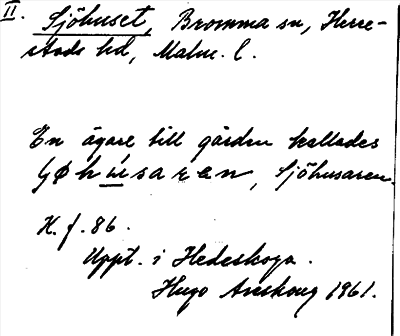 II. Sjöhuset, Bromma sn, Herre-
stads hd, Malm. l.
En ägare till gården kallades
, Sjöhusaren.
H. f. 86.
Uppt. i Hedeskoga.
Hugo Areskoug 1961.